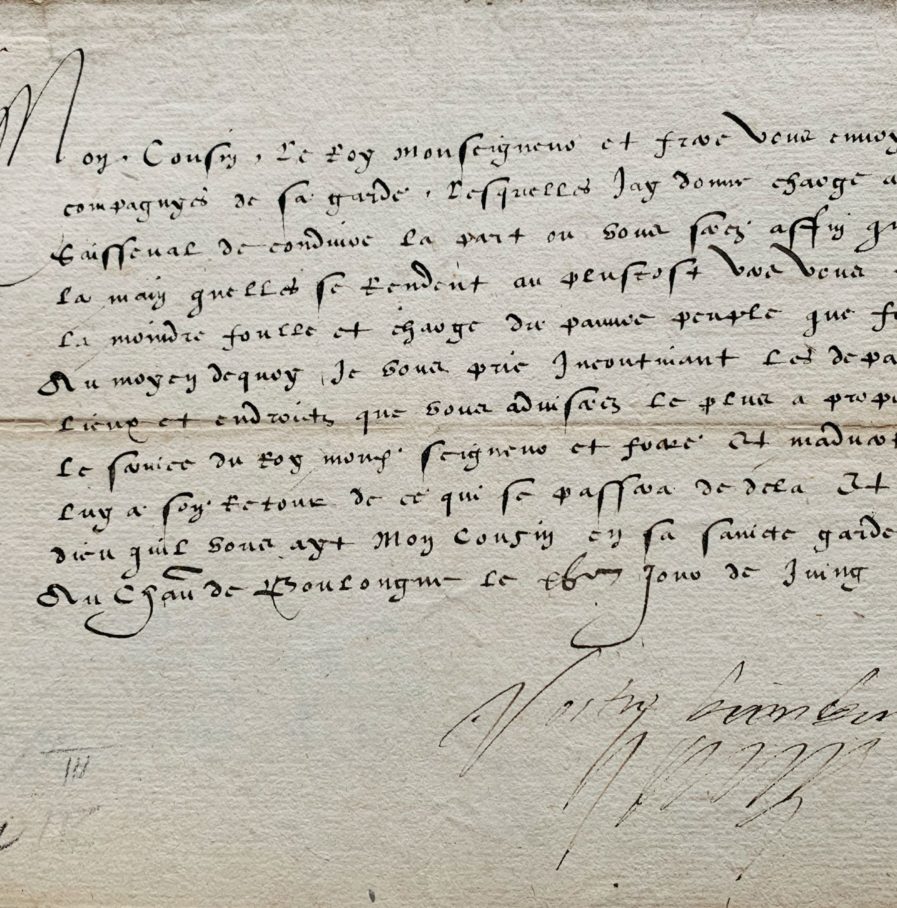 Mon Cousin, Le Roy monseigneur et frere vous envoy
compagnyes de sa garde, lesquelles Jay donne charge a
de conduire la part ou vous serez affin qu
la main quelles se Rendent au plustost vers vous
la moindre foulle et charge du pauvre peuple que f
Au moyen dequoy, Je vous prie Incontinant les depa
lieux et endroictz que vous adviserez le plus a prop
le service du Roy mond. seigneur et frere Et madvert
luy a son Retour de ce qui se passera de dela Et
dieu quil vous ayt Mon Cousin en sa saincte garde
Au Chau de Boulongne le Jour de Juing
Vostre
III